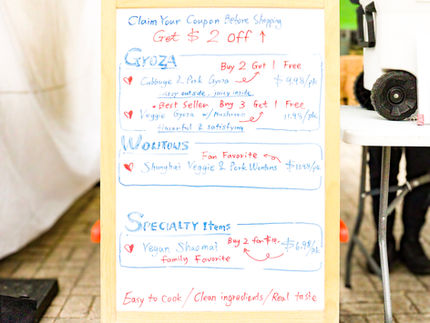 Claim Your Coupon Before Shopping
Get $2 off ↑
GYOZA
Buy 2 Get 1 Free
Cabbage & Pork Gyoza $9.98/pk
crispy outside, juicy inside
• Best Seller Buy 3 Get 1 Free
Veggie Gyoza w/ Mushroom 11.98/pk
flavorful & satisfying
WONTONS
Fan Favorite
Shanghai Veggie & Pork Wontons
SPECIALTY Items
Buy 2 for
Vegan Shaomai $6.98/pk
family Favorite
Easy to cook / Clean ingredients / Real taste